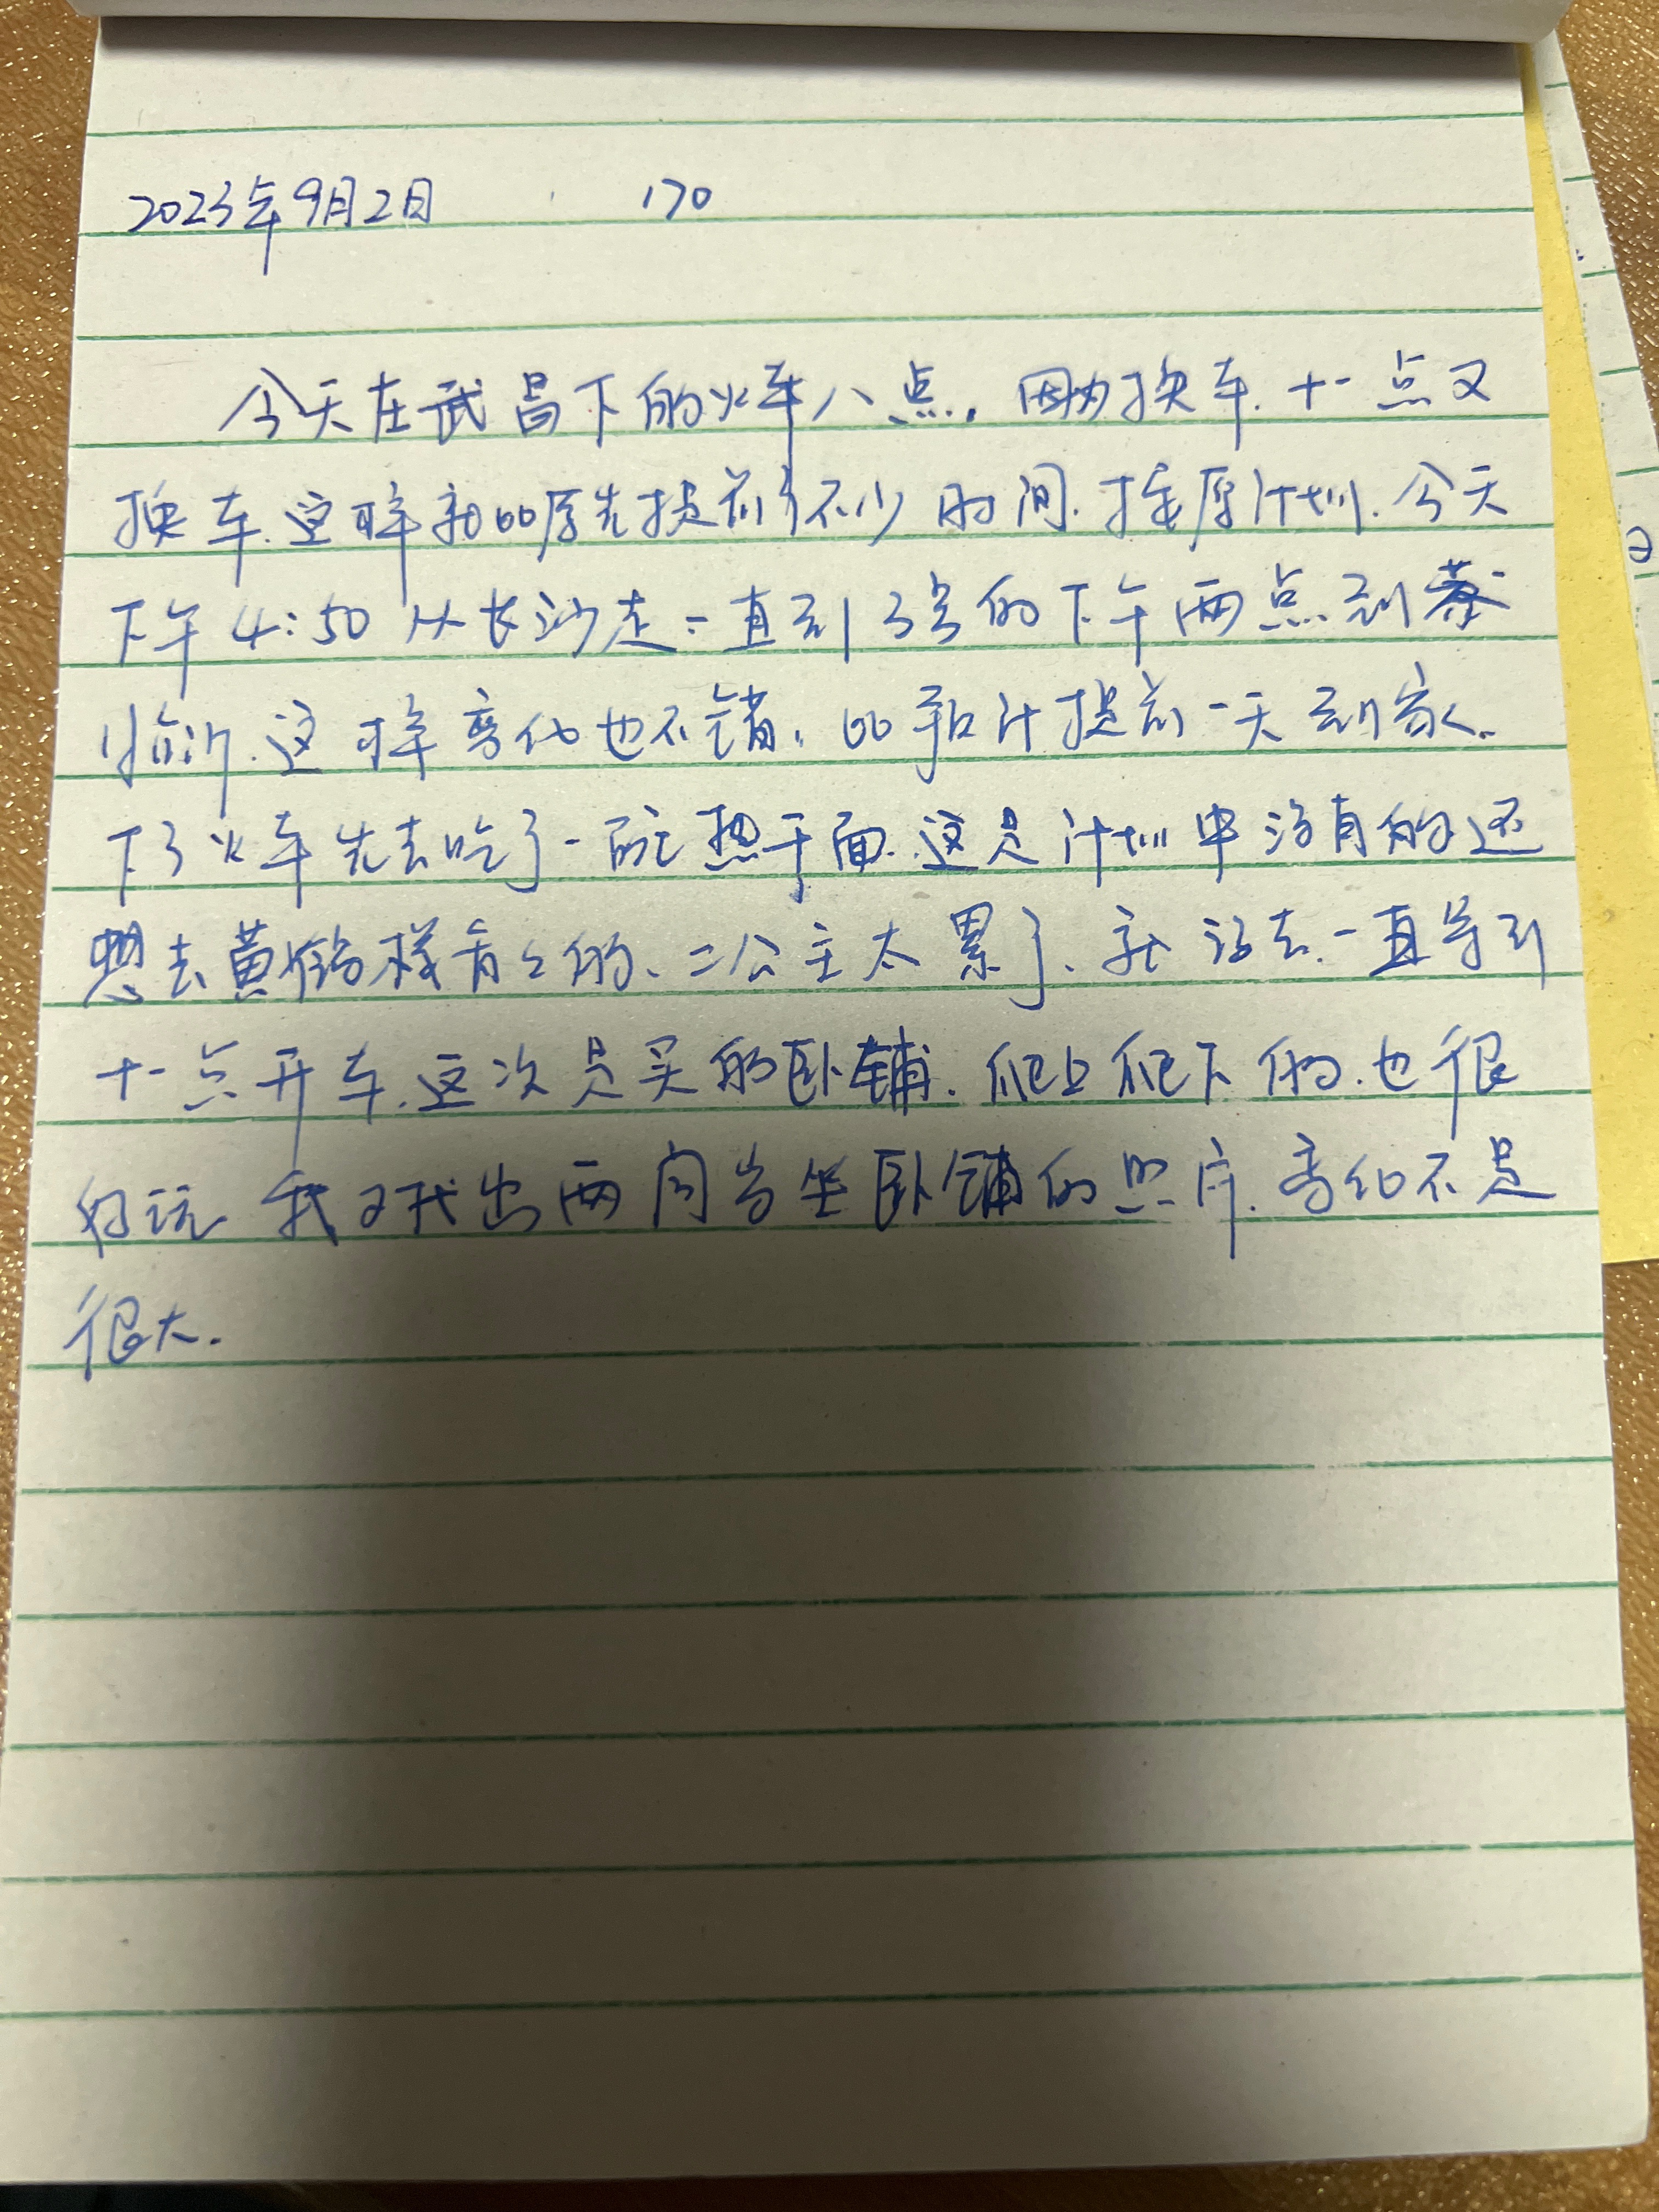 2023年9月2日 170
今天在武昌下的火车八点. 因为换车. 十一点又
换车. 这样就比原先提前了不少时间. 按原计划. 今天
下午4:50从长沙走. 一直到3号的下午两点到
临沂. 这样变化也不错. 比预计提前一天到家.
下了火车先去吃了一碗热干面. 这是计划中没有的还
想去黄鹤楼看看的、二公主太累了、就没去. 一直等到
十一点开车. 这次是买的卧铺. 爬上爬下的. 也很
好玩 我又找出两同当坐卧铺的照片. 变化不是
很大.